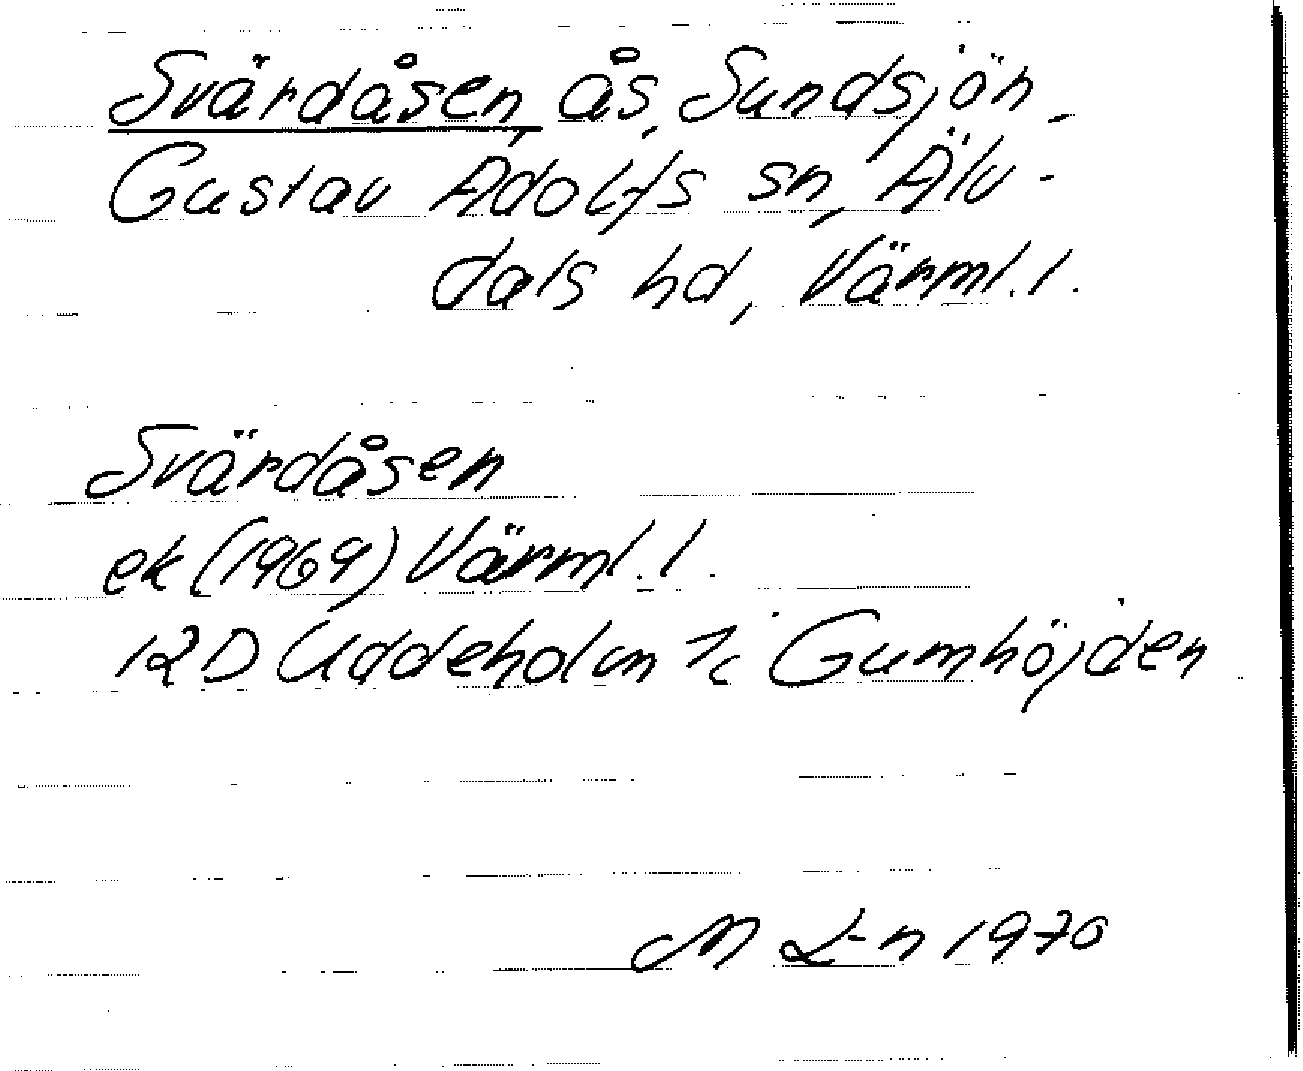 Svärdåsen, ås, Sundsjön,
Gustav Adolfs sn, Älv-
dals hd, Värml. l.
Svärdåsen
ek (1969) Värml. l.
12D Uddeholm 7c Gumhöjden
M L-n 1970